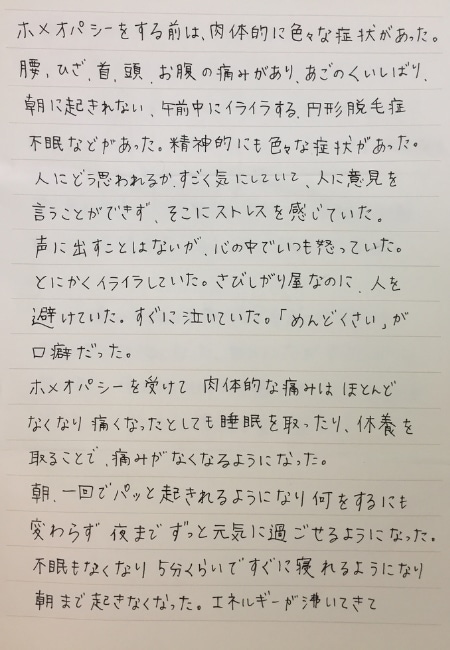 ホメオパシーをする前は、肉体的に色々な症状があった。
腰、ひざ、首、頭、お腹の痛みがあり、あごのくいしばり、
朝に起きれない、午前中にイライラする、円形脱毛症
不眠などがあった。精神的にも色々な症状があった。
人にどう思われるか、すごく気にしていて、人に意見を
言うことができず、そこにストレスを感じていた。
声に出すことはないが、心の中でいつも怒っていた。
とにかくイライラしていた。さびしがり屋なのに、人を
避けていた。すぐに泣いていた。「めんどくさい」が
口癖だった。
ホメオパシーを受けて 肉体的な痛みは ほとんど
なくなり 痛くなったとしても睡眠を取ったり、休養を
取ることで、痛みがなくなるようになった。
朝、一回でパッと起きれるようになり 何をするにも
変わらず 夜まで ずっと元気に過ごせるようになった。
不眠もなくなり 5分くらいですぐに寝れるようになり
朝まで起きなくなった。エネルギーが沸いてきて